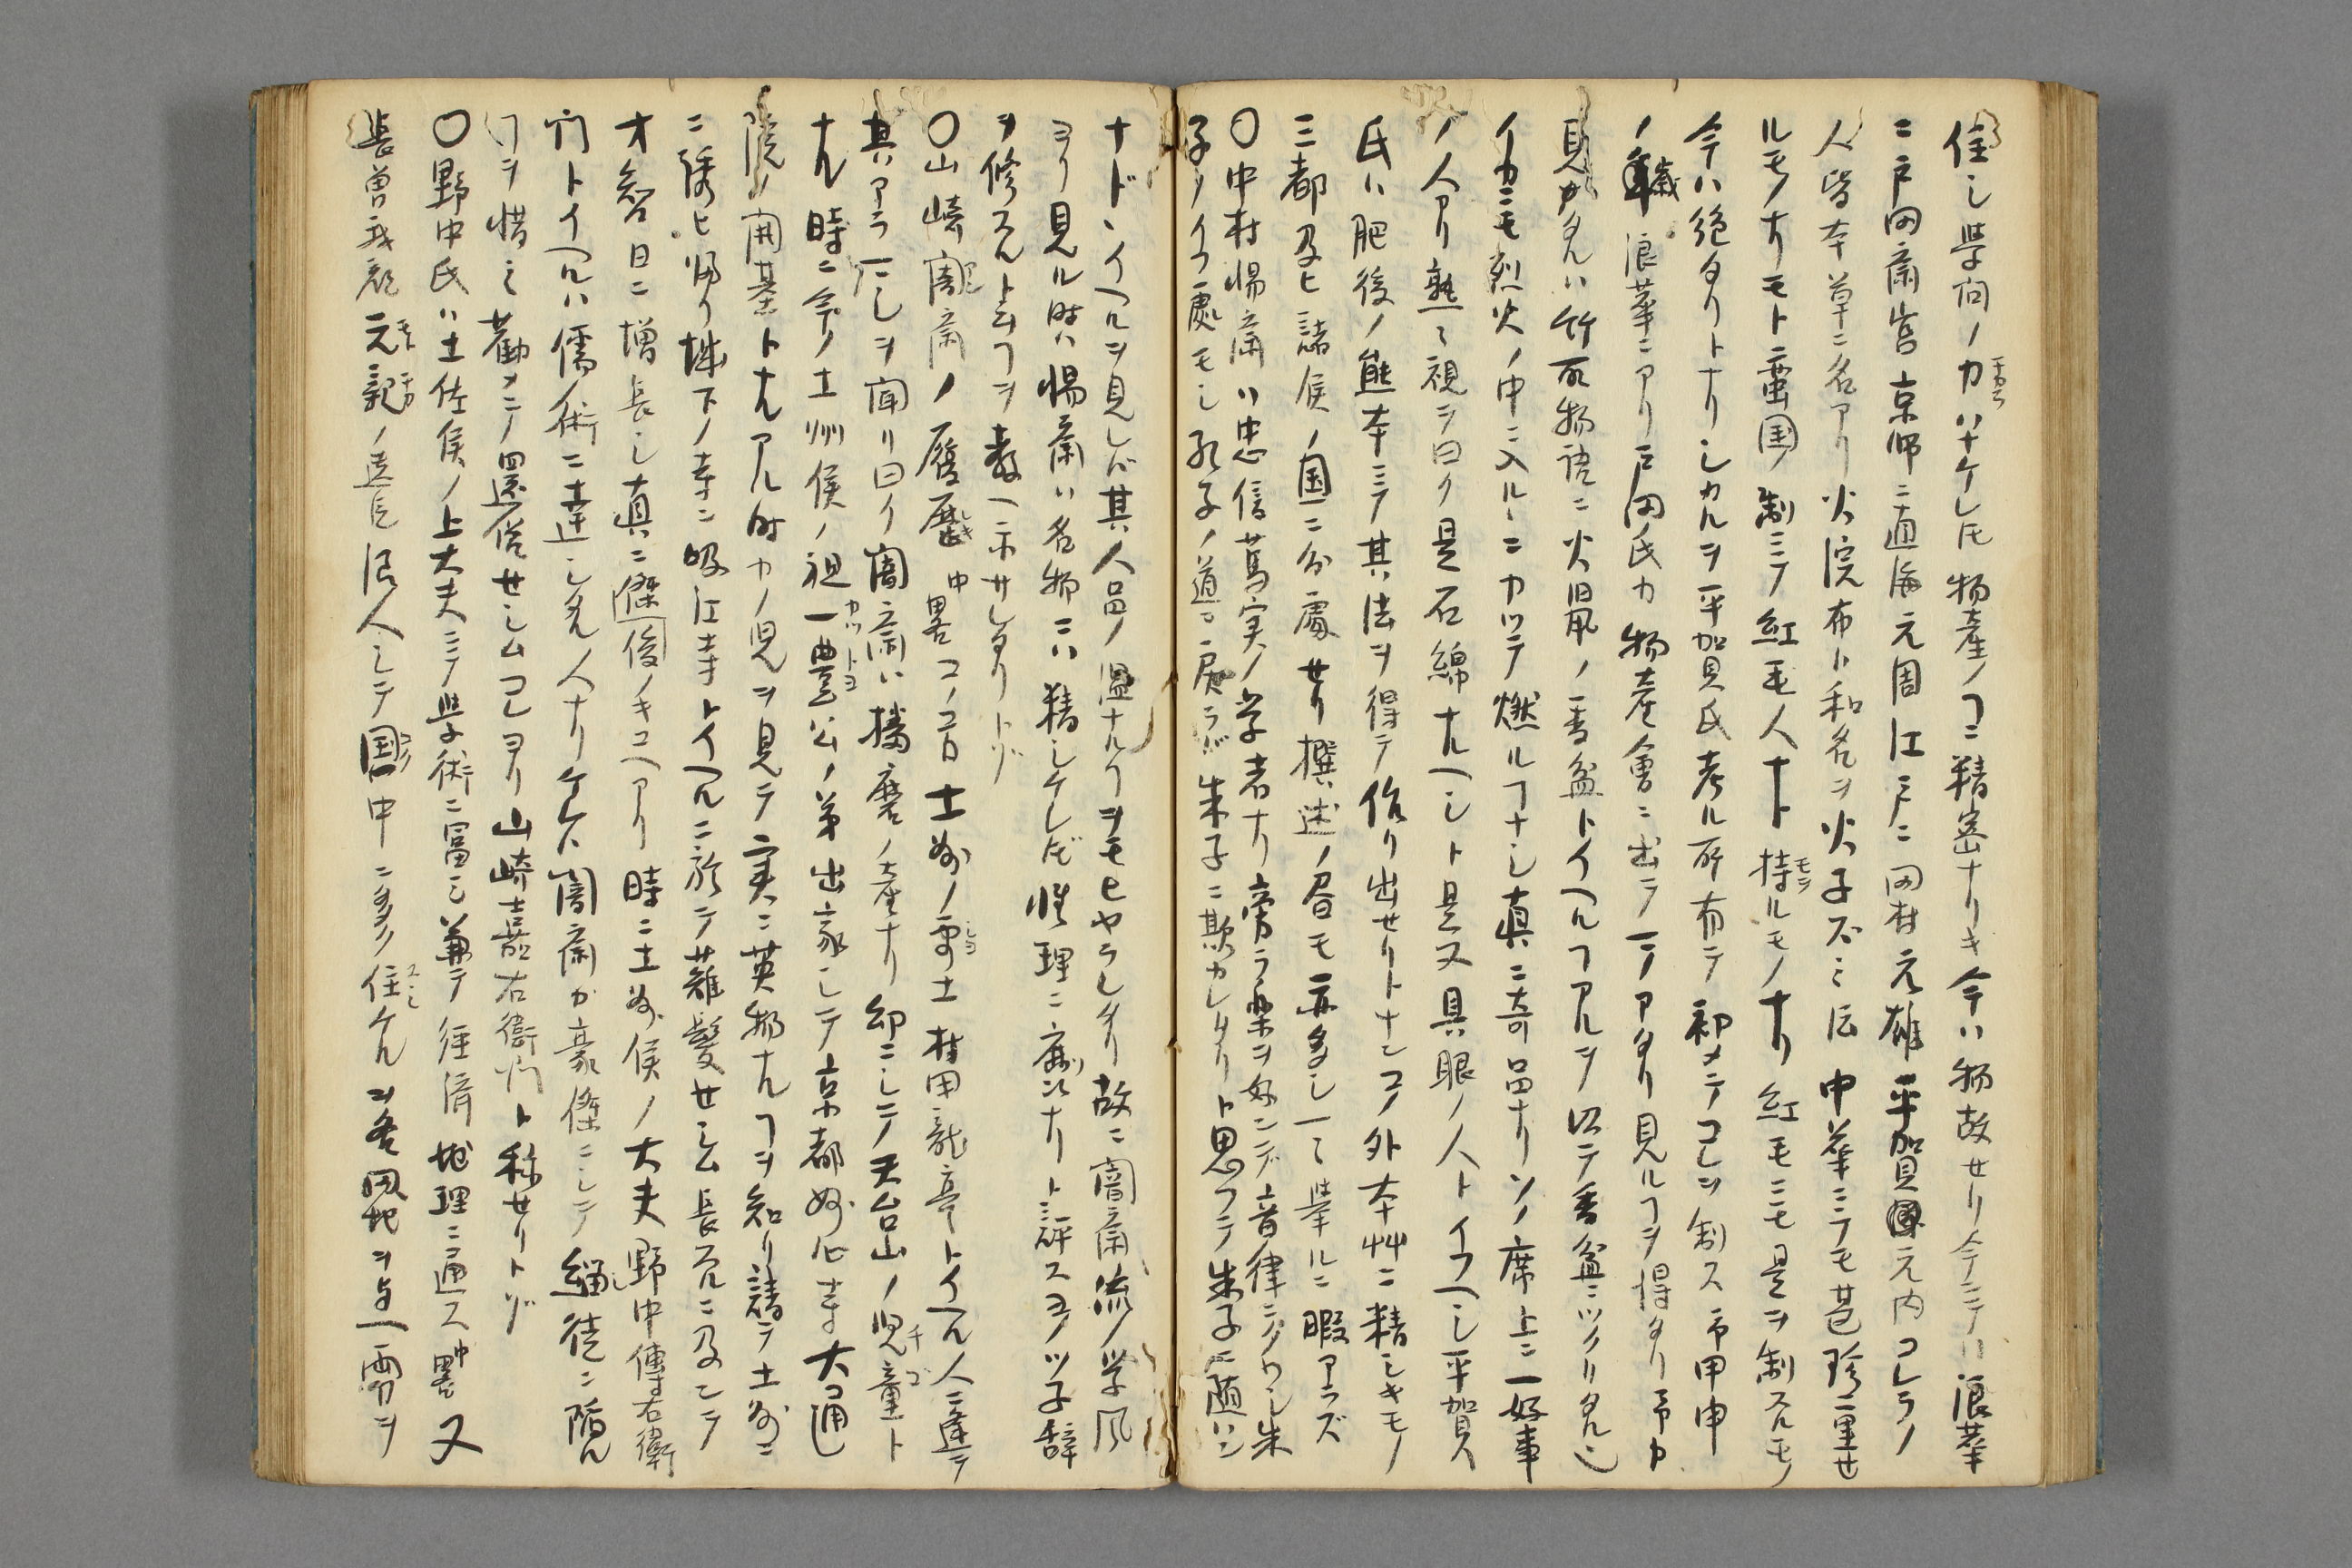 住シ学問ノ力ハナケレ𪜈物産ノヿニ精密ナリキ今ハ物故セリ今ニテハ浪華
ニ戸田斎宮京師ニ直海元周江戸ニ田村元雄平賀国元内コレラノ
人皆本草ニ名アリ火浣布ト和名ヲ火子ズミ伝中華ニテモ甚珍重セ
ルモノナリモト蛮国ノ制ニテ紅毛人ナト持ルモノナリ紅モニモ是ヲ制スルモノ
今ハ絶タリトナリシカルヲ平加貝氏考ル所有テ初メテコレヲ制ス予甲申
ノ歳浪華ニアリ戸田氏カ物産會ニ出テノヿアタリ見ルヿヲ得タリ予カ
見タルハ竹取物語ニ火旧鼠ノ香盆トイヘルヿアルヲ以テ香盆ニツクリタル也
イカニモ烈火ノ中ニ入ルヽニカツテ燃ルヿナシ真ニ奇品ナリソノ席上ニ一好事
ノ人アリ熟々視ヲ曰ク是石綿ナルヘシト是又具眼ノ人トイフヘシ平賀
氏ハ肥後ノ熊本ニテ其法ヲ得テ作り出セリトナンコノ外本艸ニ精シキモノ
三都及ヒ諸侯ノ国ニ分處セリ撰述ノ書モ亦多シ一々挙ルニ暇アラズ
〇中村惕斎ハ忠信篤実ノ学者ナリ旁ラ楽ヲ好ンデ音律ニクワシ朱
子ノイフ處モシ孔子ノ道ニ戻ラバ朱子ニ欺カレタリト思フテ朱子ニ随ハン
ナドヽイヘルヲ見レバ其人品ノ温ナルヿヲモヒヤラレタリ故ニ闇斎流ノ学風
ヨリ見ル時ハ惕斎ハ名物ニハ精シケレ𪜈性理ニ疎ナリト評スヨツ子辞
ヲ修スルト云フヿヲ教ヘ示サレタリトゾ
〇山崎闇斎ノ履歴中畧コノコロ土州ノ処士村田龍亭トイヘル人ニ逢テ
其アラマシヲ聞リ曰ク闇斎ハ播磨ノ産ナリ幼ニシテ天台山ノ児童ト
ナル時ニ今ノ土州侯ノ祖一豊公ノ弟出家シテ京都妙心寺大通
院ノ開基トナルアル時カノ児ヲ見テ実ニ英物ナルヿヲ知リ請テ土州ニ
ニ誘ヒ帰リ城下ノ寺ニ吸江寺トイヘルニ於テ薙髪セシム長スルニ及ンテ
才智日ニ増長シ真ニ傑俊ノキコヘアリ時ニ土州侯ノ大夫野中傳右衛
門トイヘルハ儒術ニ達シタル人ナリケルカ闇斎カ豪傑ニシテ緇徒ニ陥ル
ヿヲ惜ミ勧メテ還俗セシムコレヨリ山崎嘉右衛門ト称セリトゾ
〇野中氏ハ土佐侯ノ上大夫ニテ学術ニ富ミ兼テ経済地理ニ通ス中畧又
長曽我部元親ノ遺臣浪人シテ国中ニ多ク住ケルヲ各田地ヲ与ヘ一領ヲ